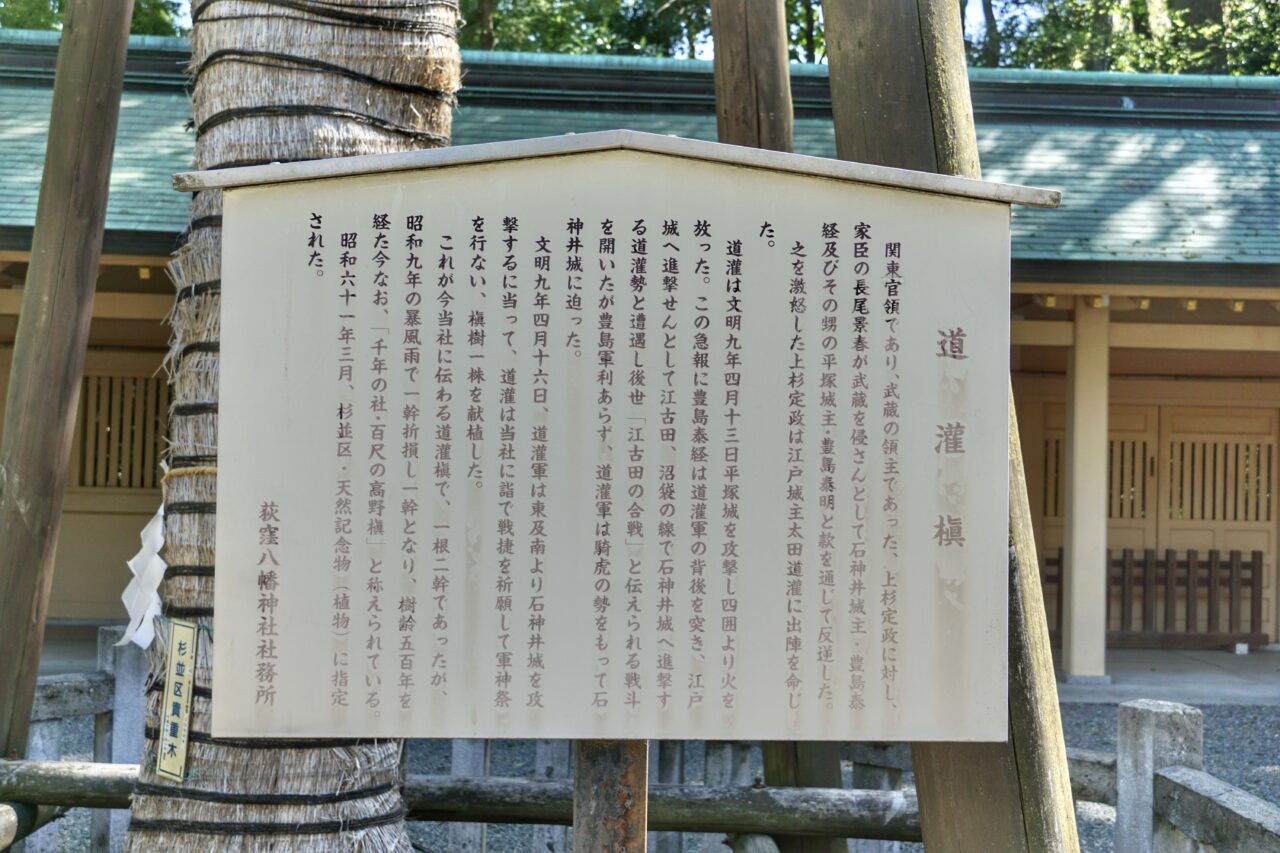 道灌槇
関東官領であり、武蔵の領主であった、上杉定政に対し、
家臣の長尾景春が武蔵を侵さんとして石神井城主・豊島泰
経及びその甥の平塚城主・豊島泰明と款を通じて反逆した。
之を激怒した上杉定政は江戸城主太田道灌に出陣を命じ
た。
道灌は文明九年四月十三日平塚城を攻撃し四囲より火を
放った。この急報に豊島泰経は道灌軍の背後を突き、江戸
城へ進撃せんとして江古田、沼袋の線で石神井城へ進撃す
る道灌勢と遭遇し後世「江古田の合戦」と伝えられる戦斗
を開いたが豊島軍利あらず、道灌軍は騎虎の勢をもって石
神井城に迫った。
文明九年四月十六日、道灌軍は東及南より石神井城を攻
撃するに当って、道灌は当社に詣で戦捷を祈願して軍神祭
を行ない、槇樹一株を献植した。
これが今当社に伝わる道灌槇で、一根二幹であったが、
昭和九年の暴風雨で一幹折損し一幹となり、樹齢五百年を
経た今なお、「千年の社・百尺の高野槇」と称えられている。
昭和六十一年三月、杉並区・天然記念物（植物）に指定
された。
荻窪八幡神社社務所
杉並区貴重木